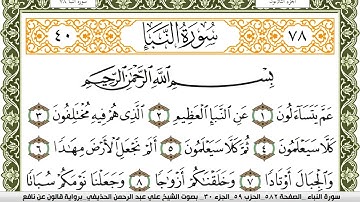 سورة النبأ ٧٨ الجزء الثلاثون
٧٨ سُورَةُ النَّبَإِ ٤٠
بِسْمِ اللَّهِ الرَّحْمَٰنِ الرَّحِيمِ
عَمَّ يَتَسَآءَلُونَ ١ عَنِ النَّبَإِ الْعَظِيمِ ٢ الَّذِي هُمْ فِيهِ مُخْتَلِفُونَ ٣
كَلَّا سَيَعْلَمُونَ ٤ ثُمَّ كَلَّا سَيَعْلَمُونَ ٥ أَلَمْ نَجْعَلِ الْأَرْضَ مِهَٰدًا ٦
وَالْجِبَالَ أَوْتَادًا ٧ وَخَلَقْنَٰكُمْ أَزْوَٰجًا ٨ وَجَعَلْنَا نَوْمَكُمْ سُبَاتًا
سورة النبإ الصفحة ٥٨٢ الحزب ٥٩ الجزء ٣٠ بصوت الشيخ علي عبد الرحمن الحذيفي برواية قالون عن نافع